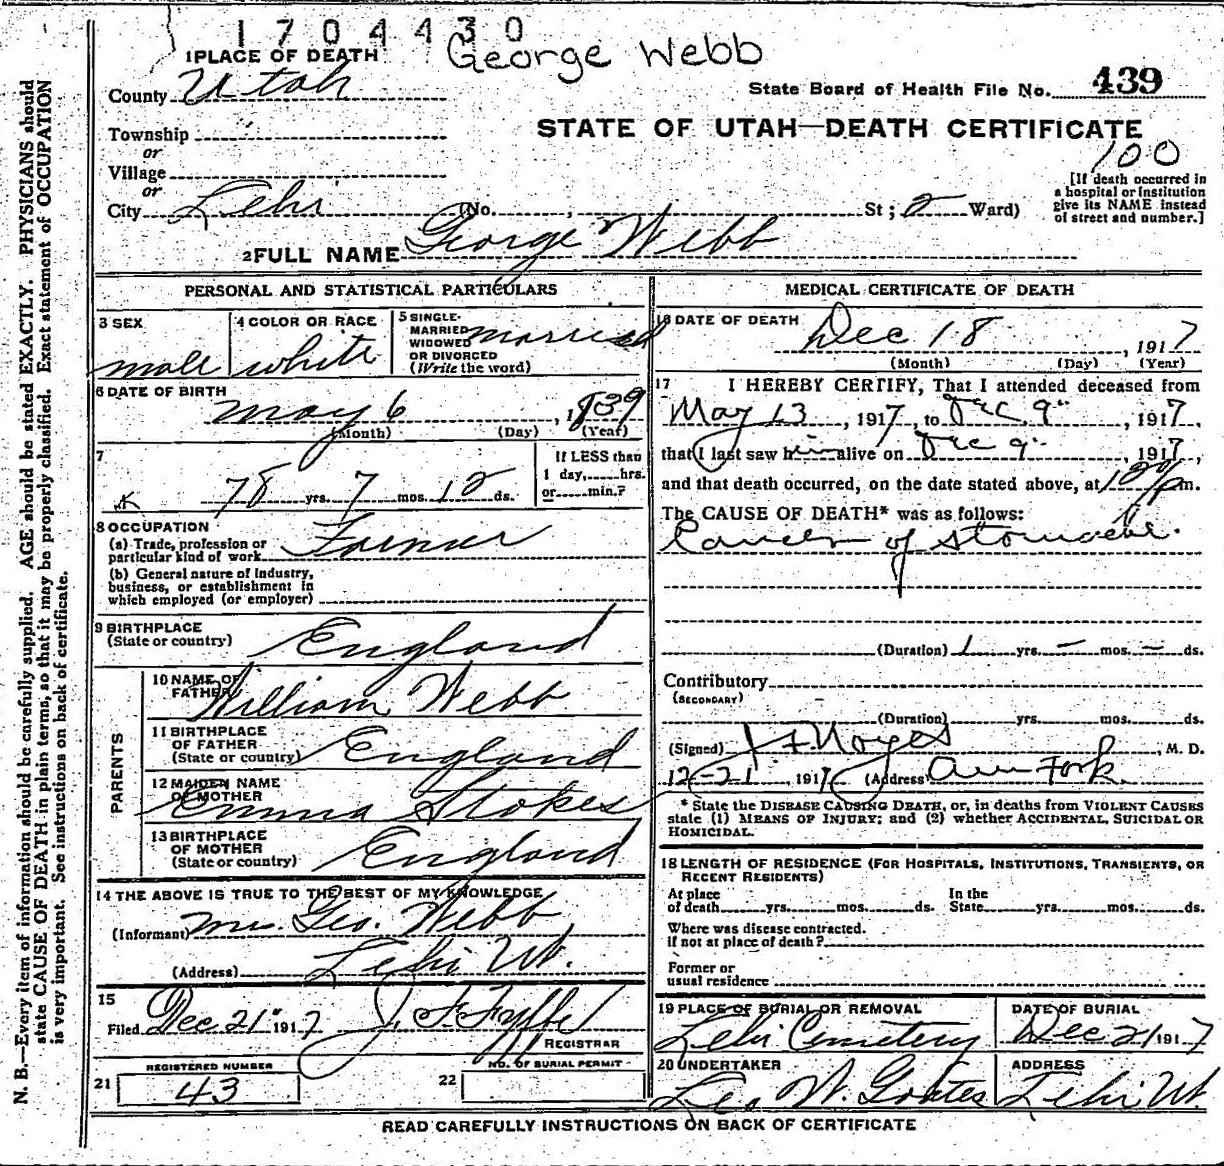 1704430
George Webb
1 PLACE OF DEATH
County Utah
State Board of Health File No. 439
Township
STATE OF UTAH—DEATH CERTIFICATE
or
100
Village
or
[If death occurred in
a hospital or institution
give its NAME instead
of street and number.]
City Lehi (No. , St ; 2 Ward)
2 FULL NAME George Webb
PERSONAL AND STATISTICAL PARTICULARS
3 SEX
male
4 COLOR OR RACE
white
5 SINGLE-
MARRIED
WIDOWED
OR DIVORCED
(Write the word)
married
6 DATE OF BIRTH
may 6 , 1839
(Month) (Day) (Year)
7
78 yrs. 7 mos. 12 ds.
If LESS than
1 day, hrs.
or min.?
8 OCCUPATION
(a) Trade, profession or
particular kind of work Farmer
(b) General nature of industry,
business, or establishment in
which employed (or employer)
9 BIRTHPLACE
(State or country) England
PARENTS
10 NAME OF
FATHER William Webb
11 BIRTHPLACE
OF FATHER
(State or country) England
12 MAIDEN NAME
OF MOTHER Emma Stokes
13 BIRTHPLACE
OF MOTHER
(State or country) England
14 THE ABOVE IS TRUE TO THE BEST OF MY KNOWLEDGE
(Informant) Mrs. Geo. Webb
(Address) Lehi Ut.
15
Filed Dec. 21" 1917 J. F. Fyffe
REGISTRAR
REGISTERED NUMBER
21 43
NO. OF BURIAL PERMIT
22
MEDICAL CERTIFICATE OF DEATH
16 DATE OF DEATH
Dec 18 , 1917
(Month) (Day) (Year)
17 I HEREBY CERTIFY, That I attended deceased from
May 13 , 1917, to Dec. 9" , 1917.
that I last saw him alive on Dec 9" , 1917,
and that death occurred, on the date stated above, at m.
The CAUSE OF DEATH* was as follows:
Cancer of stomach.
(Duration) 1 yrs. – mos. – ds.
Contributory
(SECONDARY)
(Duration) yrs. mos. ds.
(Signed) Noyes , M. D.
12-21 , 1917 (Address) Am Fork.
* State the DISEASE CAUSING DEATH, or, in deaths from VIOLENT CAUSES
state (1) MEANS OF INJURY; and (2) whether ACCIDENTAL, SUICIDAL OR
HOMICIDAL.
18 LENGTH OF RESIDENCE (FOR HOSPITALS, INSTITUTIONS, TRANSIENTS, OR
RECENT RESIDENTS)
At place
of death yrs. mos. ds.
In the
State yrs. mos. ds.
Where was disease contracted.
if not at place of death?
Former or
usual residence
19 PLACE OF BURIAL OR REMOVAL
Lehi Cemetery
DATE OF BURIAL
Dec 21 1917
20 UNDERTAKER
Geo W. Goates
ADDRESS
Lehi Ut.
READ CAREFULLY INSTRUCTIONS ON BACK OF CERTIFICATE
N. B.—Every item of information should be carefully supplied. AGE should be stated EXACTLY. PHYSICIANS should
state CAUSE OF DEATH in plain terms, so that it may be properly classified. Exact statement of OCCUPATION
is very important. See instructions on back of certificate.